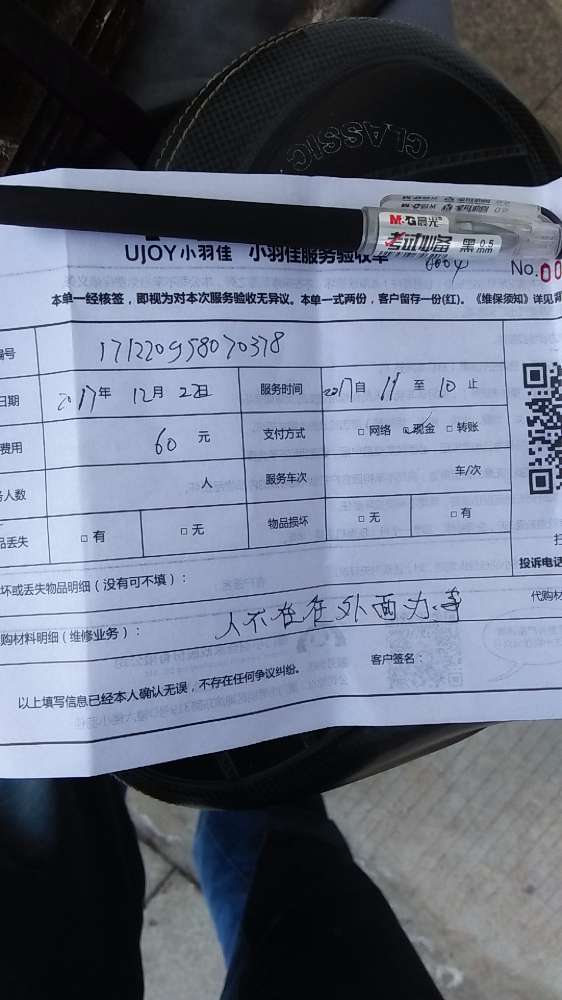 CLASSIC
M&G晨光®
考试必备 黑 0.5
UJOY小羽佳 小羽佳服务验收单
No.00
本单一经核签，即视为对本次服务验收无异议。本单一式两份，客户留存一份(红)。《维保须知》详见背
编号 171220958070378
日期 2017年 12月 2日 服务时间 2017自 19 至 10 止
费用 60 元 支付方式 □网络 ☑现金 □转账
务人数 人 服务车次 车/次
品丢失 □有 □无 物品损坏 □无 □有
投诉电话
坏或丢失物品明细（没有可不填）：
代购材
购材料明细（维修业务）： 人不在在外面办事
以上填写信息已经本人确认无误，不存在任何争议纠纷。 客户签名：